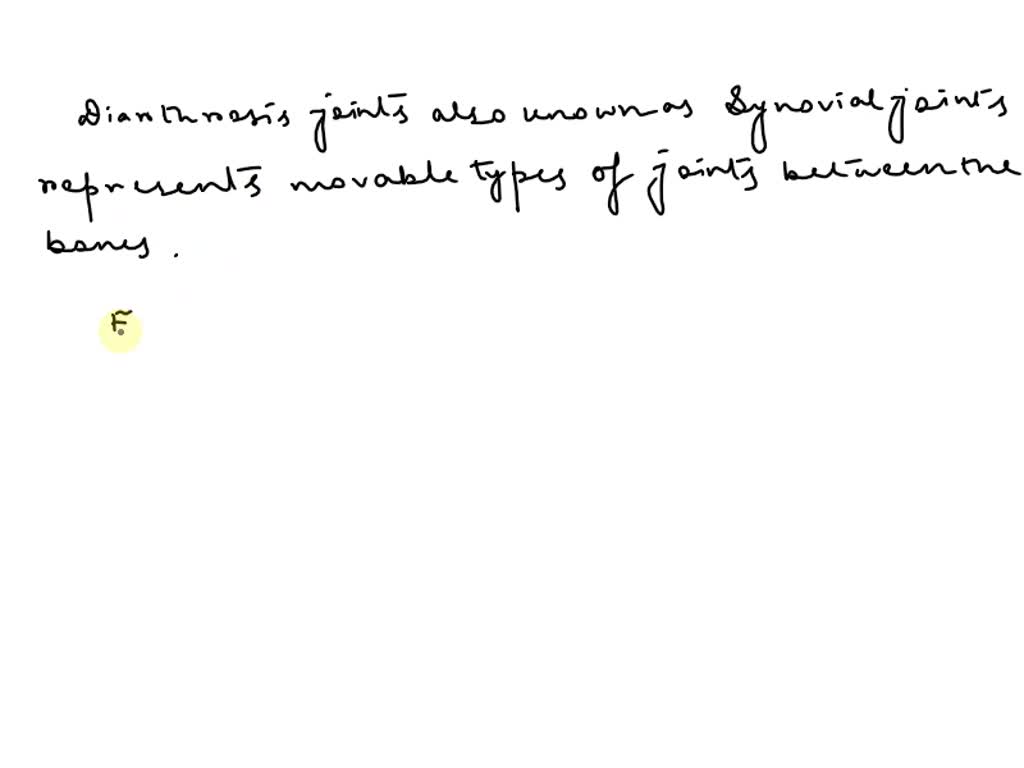 Diarthrosis joints also known as Synovial joints
represents movable types of joints between the
bones.
F